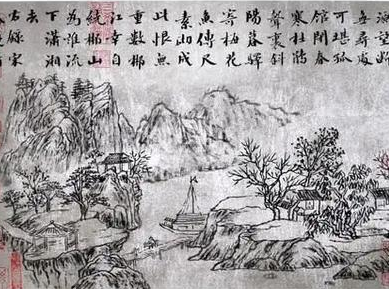 無尋處
可堪孤
館閉春
寒杜鵑
聲裏斜
陽暮驛
寄梅花
魚傳尺
素砌成
此恨無
重數郴
江幸自
繞郴山
為誰流
下瀟湘
去